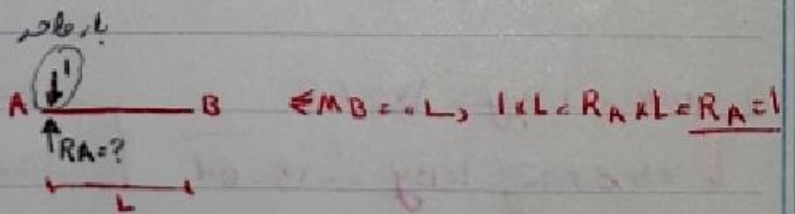 بار واحد
1
A B ΣMB = 0 L, 1 x L = RA x L = RA = 1
RA = ?
L